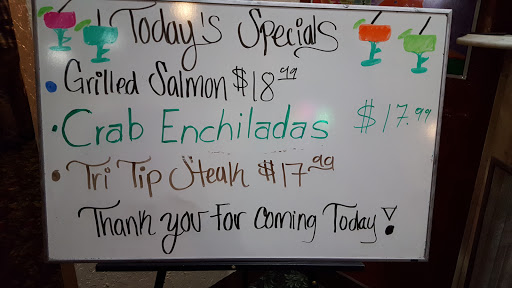 Today's Specials
• Grilled Salmon $18.99
• Crab Enchiladas $17.99
• Tri Tip Steak $17.99
Thank you For Coming Today!